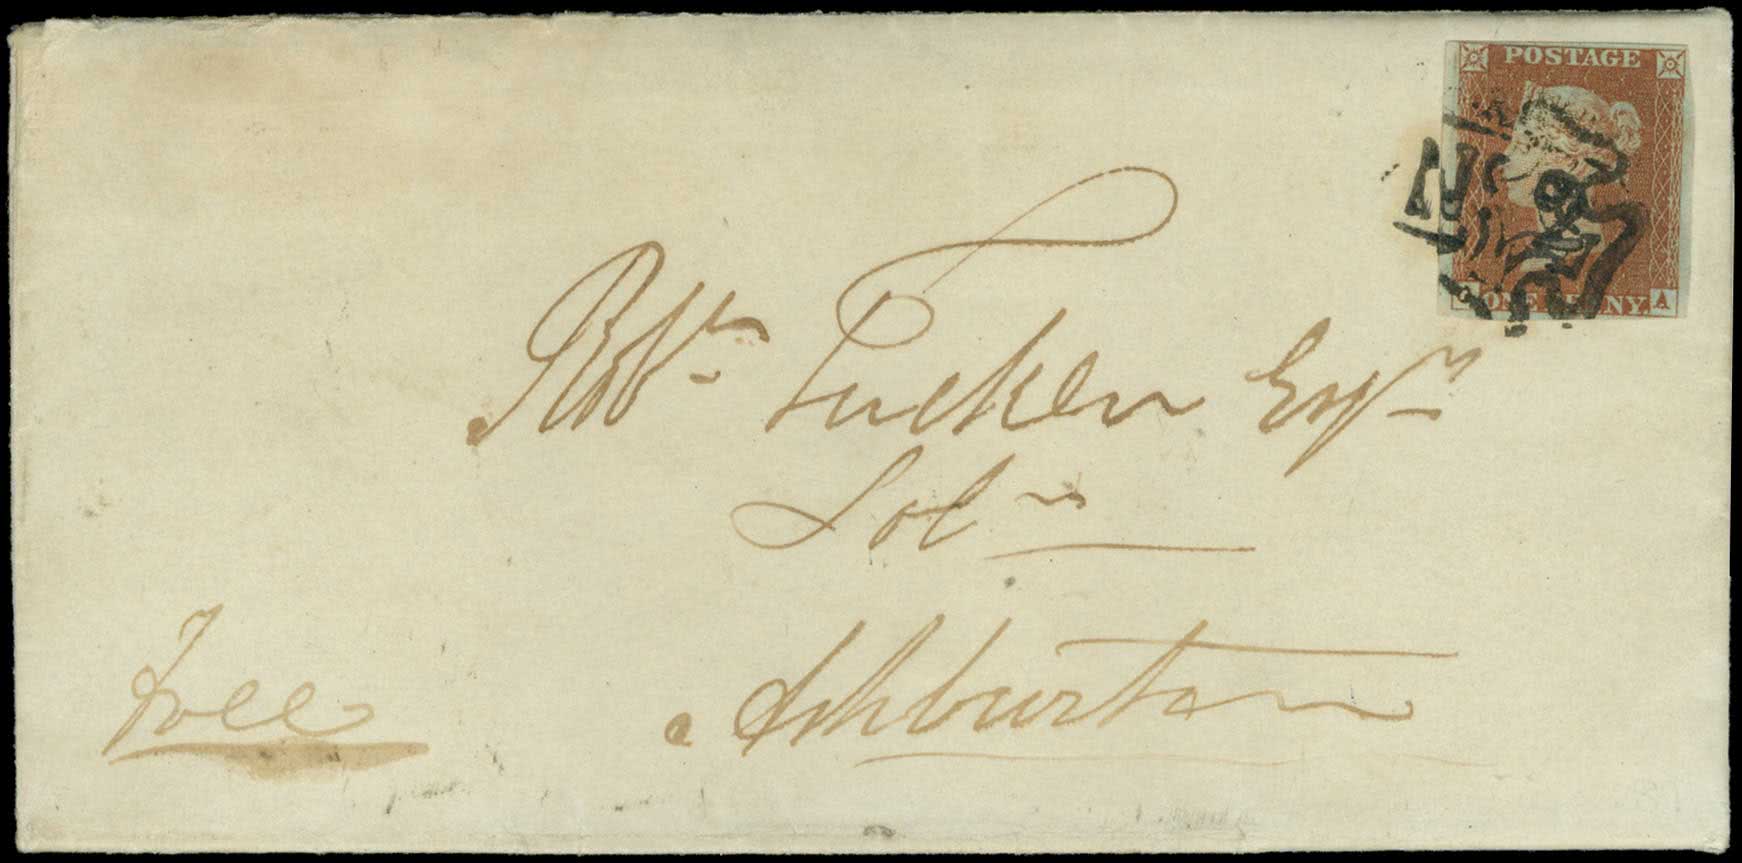 POSTAGE
ONE PENNY.
A
No
Robt. Tucker Esqr
Solr
Ashburton